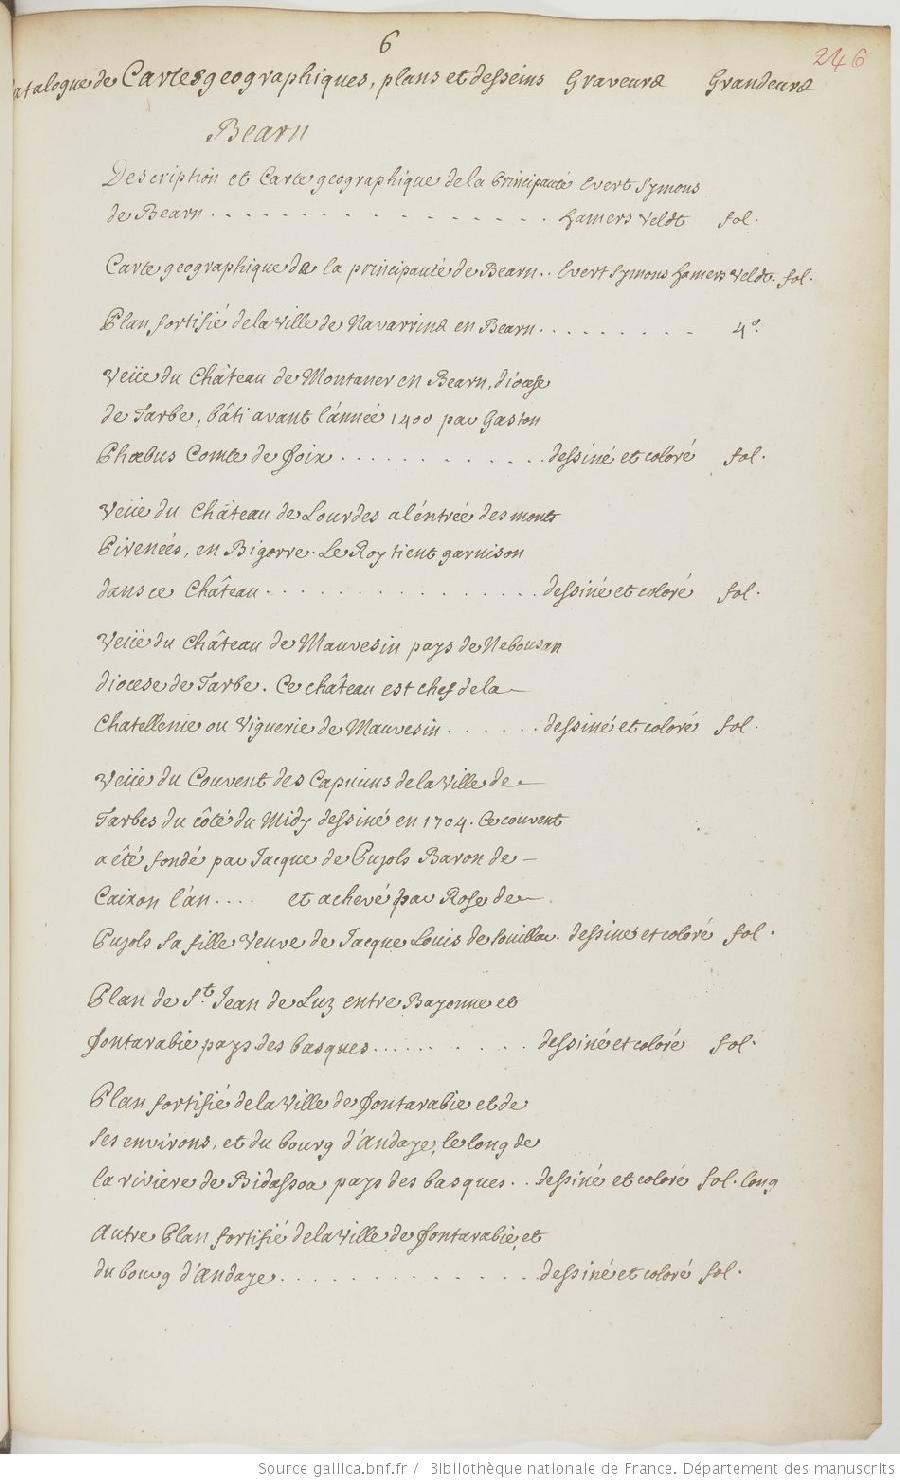 6
246
Catalogue de Cartes geographiques, plans et desseins Graveurs Grandeurs
Bearn
Description et Carte geographique de la principauté Evert Symons
de Bearn . . . . . . . . . . . . . . . Hamers Veldt fol.
Carte geographique de la principauté de Bearn . . Evert Symons Hamers Veldt. fol.
Plan fortifié de la Ville de Navarrins en Bearn . . . . . . . . . 4°.
Veüe du Château de Montaner en Bearn, diocese
de Tarbe, bâti avant l'année 1400 par Gaston
Phœbus Comte de foix . . . . . . . . . . . . dessiné et coloré fol.
Veüe du Château de Lourdes a l'éntrée des monts
Pirenées, en Bigorre. Le Roy tient garnison
dans ce Château . . . . . . . . . . . . . . . dessiné et coloré fol.
Veüe du Château de Mauvesin pays de Nebousan
diocese de Tarbe. Ce château est chef de la
Chatellenie ou Viguerie de Mauvesin . . . . . . dessiné et coloré fol.
Veüe du Couvent des Capucins de la Ville de
Tarbes du côté du Midy dessiné en 1704. Ce couvent
a été fondé par Jacque de Pujols Baron de
Caixon l'an . . . . et achevé par Rose de
Pujols sa fille Veuve de Jacque Louis de souillac. dessinés et coloré fol.
Plan de St. Jean de Luz entre Bayonne et
fontarabie pays des basques . . . . . . . . . dessiné et coloré fol.
Plan fortifié de la Ville de fontarabie et de
ses environs, et du bourg d'Andaye, le long de
la riviere de Bidassoa pays des basques . . dessiné et coloré fol. long
Autre Plan fortifié de la Ville de fontarabie, et
du bourg d'Andaye . . . . . . . . . . . . . . dessiné et coloré fol.
Source gallica.bnf.fr / Bibliothèque nationale de France. Département des manuscrits